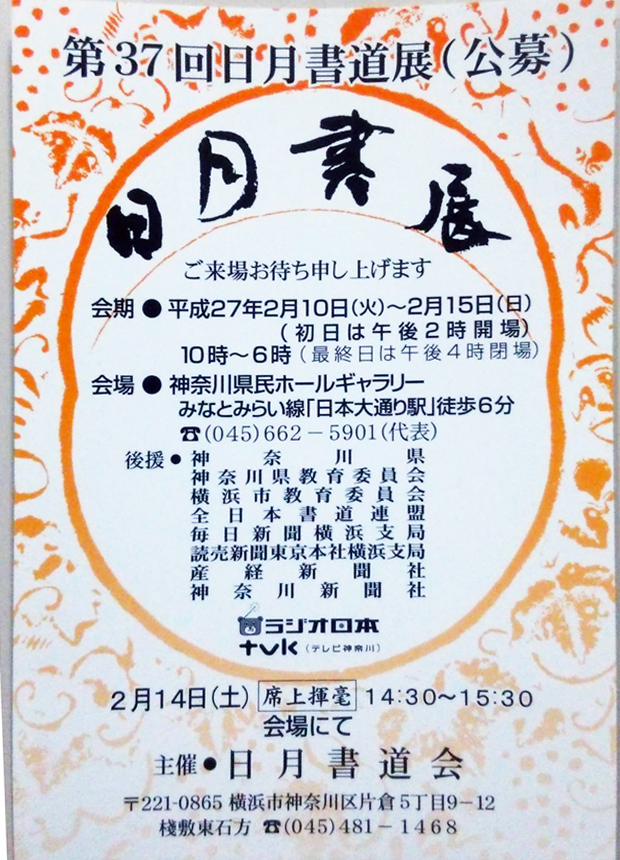 第37回日月書道展(公募)
日月書展
ご来場お待ち申し上げます
会期●平成27年2月10日(火)～2月15日(日)
(初日は午後2時開場)
10時～6時(最終日は午後4時閉場)
会場●神奈川県民ホールギャラリー
みなとみらい線「日本大通り駅」徒歩6分
☎(045)662－5901(代表)
後援●神奈川県
神奈川県教育委員会
横浜市教育委員会
全日本書道連盟
毎日新聞横浜支局
読売新聞東京本社横浜支局
産経新聞社
神奈川新聞社
ラジオ日本
tvk(テレビ神奈川)
2月14日(土) 席上揮毫 14:30～15:30
会場にて
主催●日月書道会
〒221-0865 横浜市神奈川区片倉5丁目9－12
棧敷東石方 ☎(045)481－1468